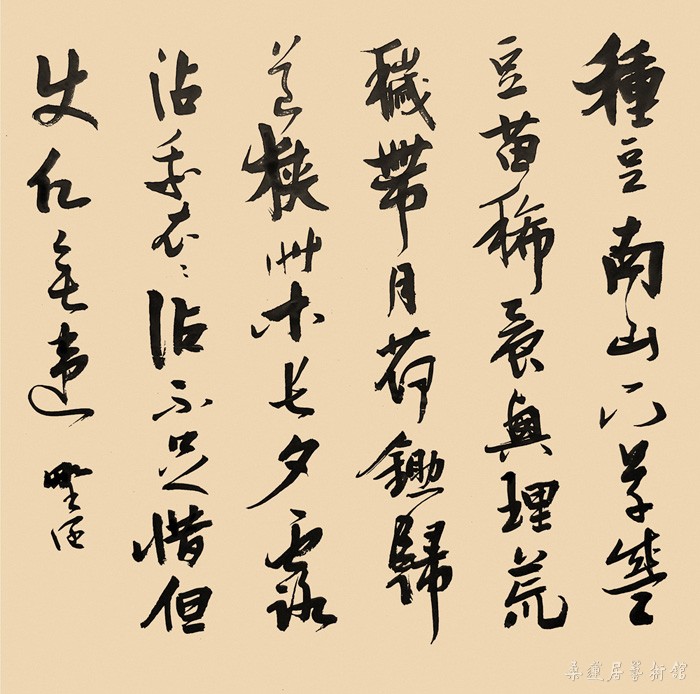 種豆南山下草盛
豆苗稀晨興理荒
穢帶月荷鋤歸
道狹艸木長夕露
沾我衣〻沾不足惜但
使願無違
桑蓮居藝術館